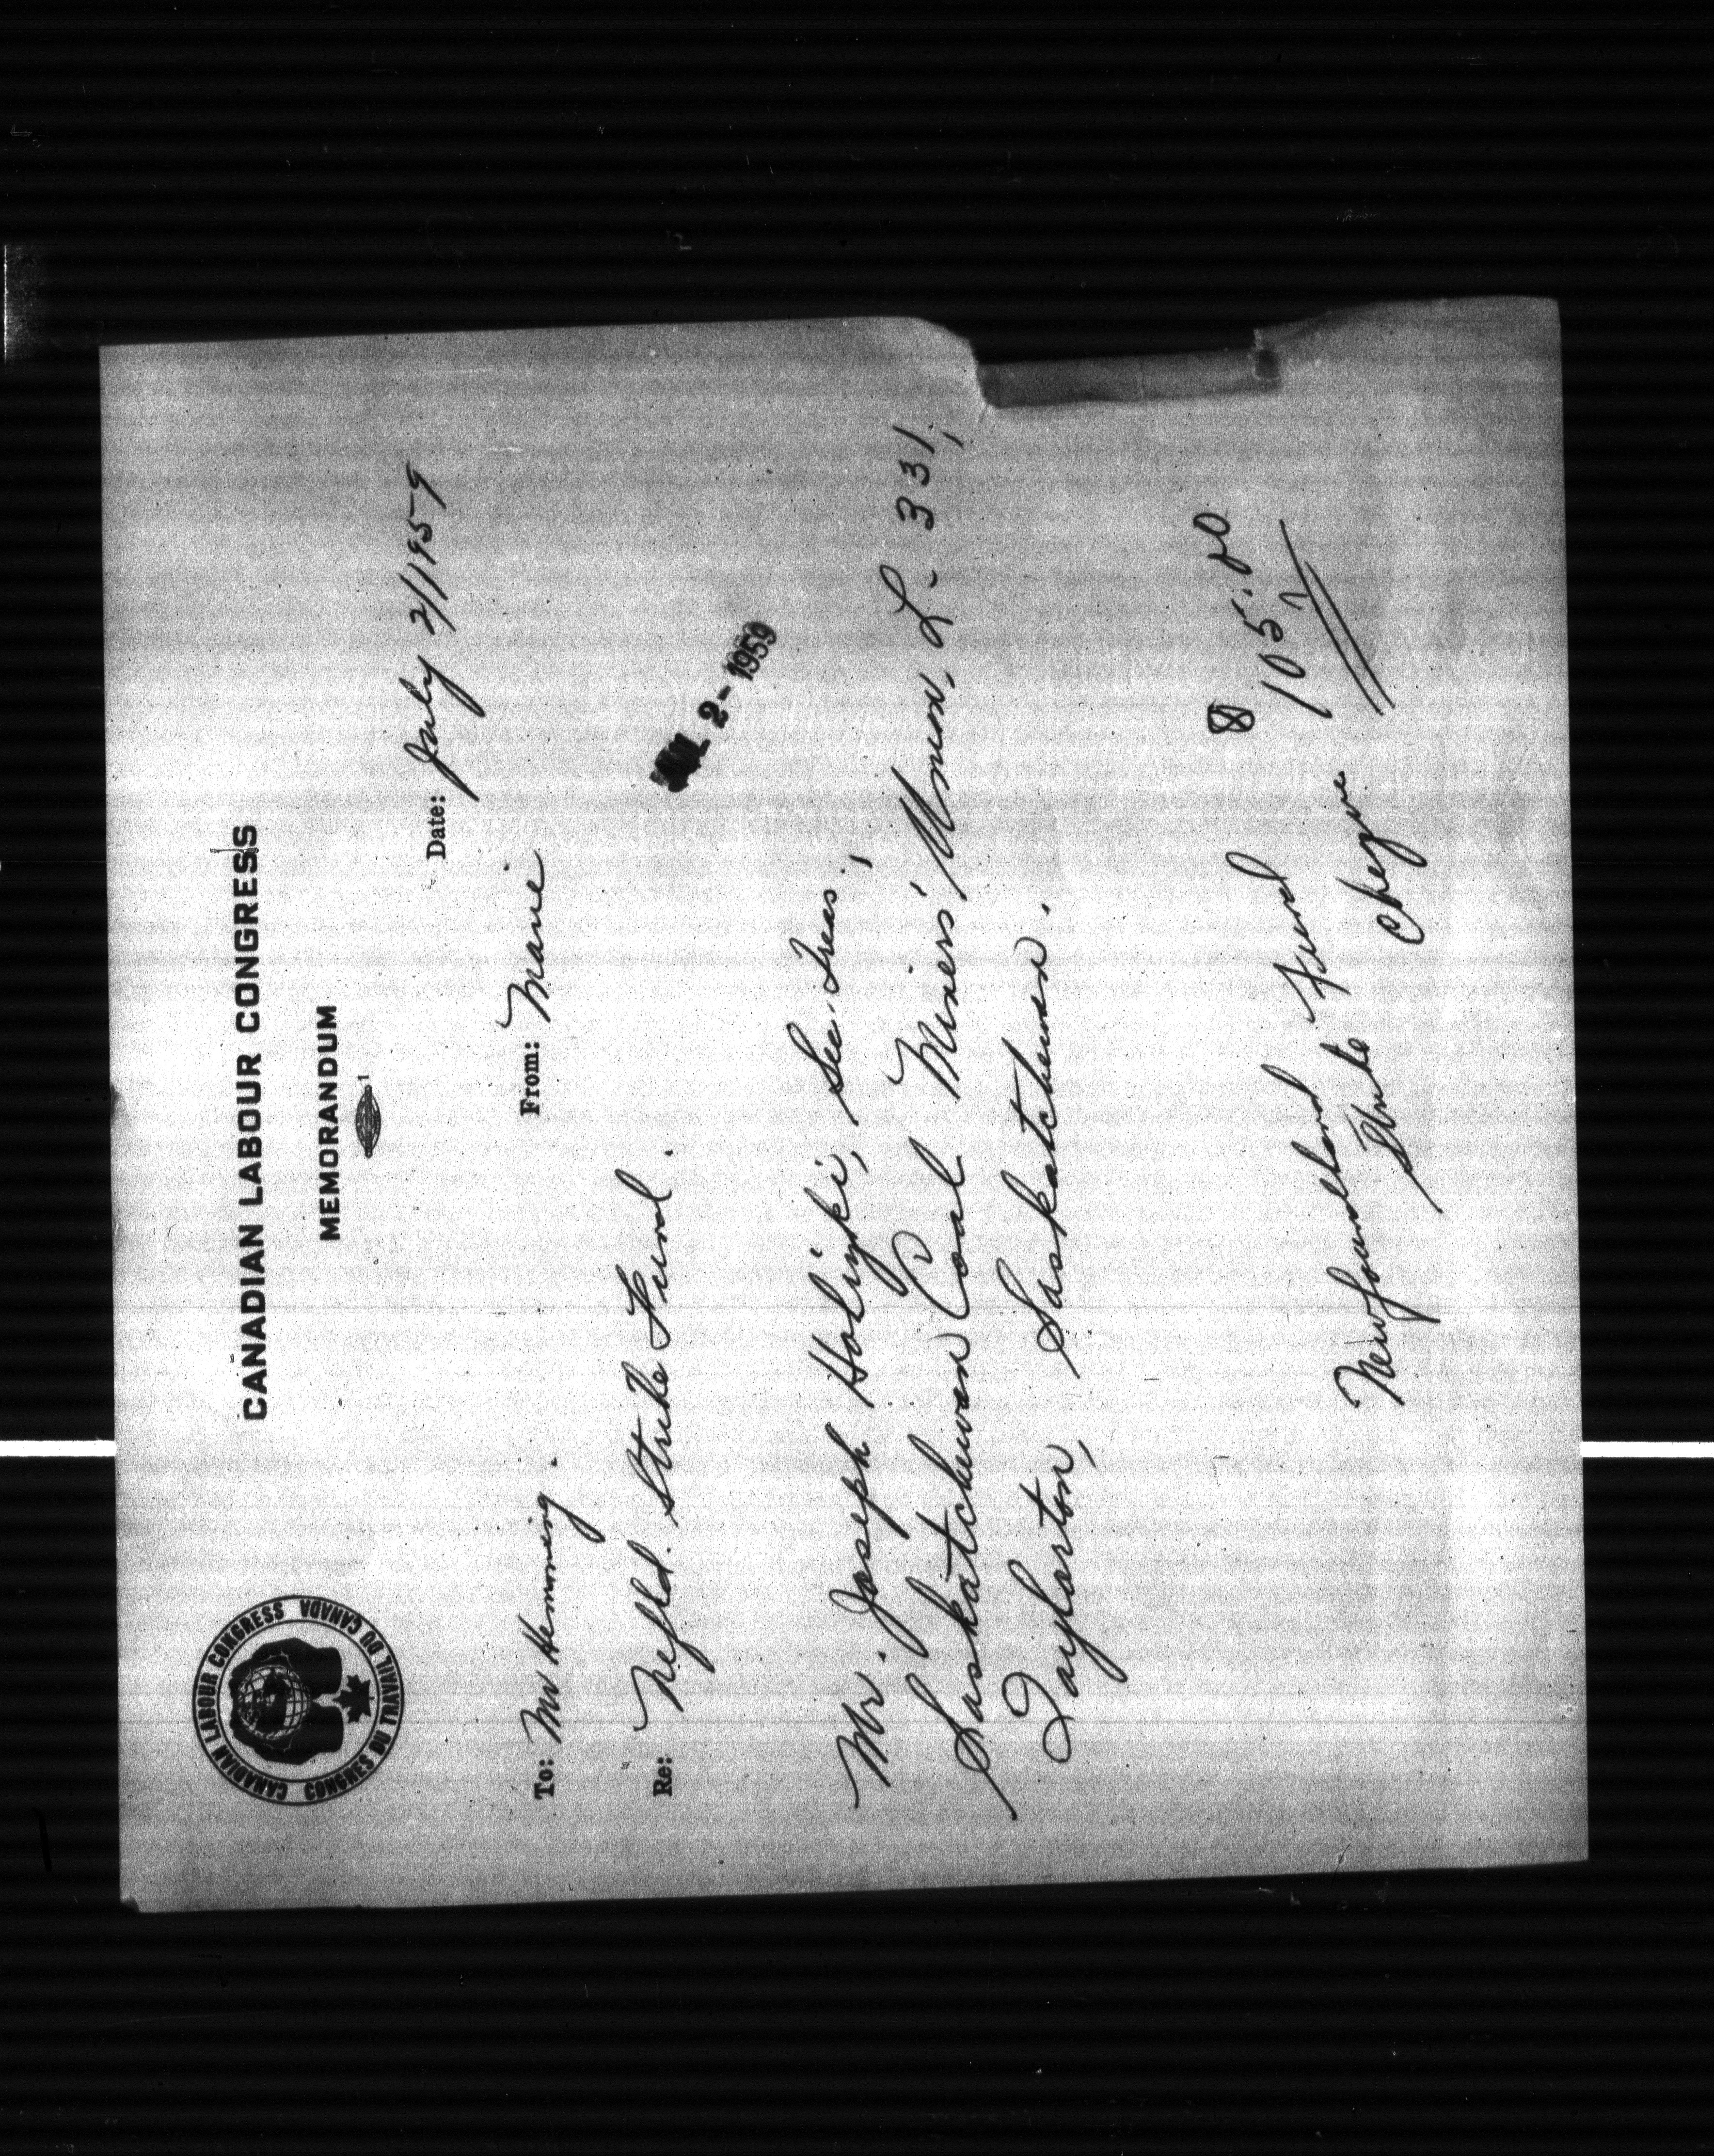 CANADIAN LABOUR CONGRESS CONGRÈS DU TRAVAIL DU CANADA
CANADIAN LABOUR CONGRESS
MEMORANDUM
Date: July 2/1959
To: Mr Hemming.
From: Marie
Re: Nfld. Strike Fund.
JUL 2 - 1959
Mr. Joseph Holinski, Sec. Treas.,
Saskatchewan Coal Miners' Union, L. 331,
Taylorton, Saskatchewan.
105.00
Newfoundland Fund
Strike Cheque